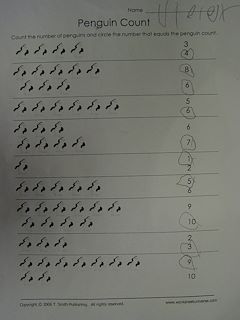 Name
Penguin Count
Count the number of penguins and circle the number that equals the penguin count.
3
4
8
6
5
6
6
7
1
2
5
6
9
10
2
3
9
10
Copyright © 2006 T. Smith Publishing. All rights reserved.
www.worksheetuniverse.com